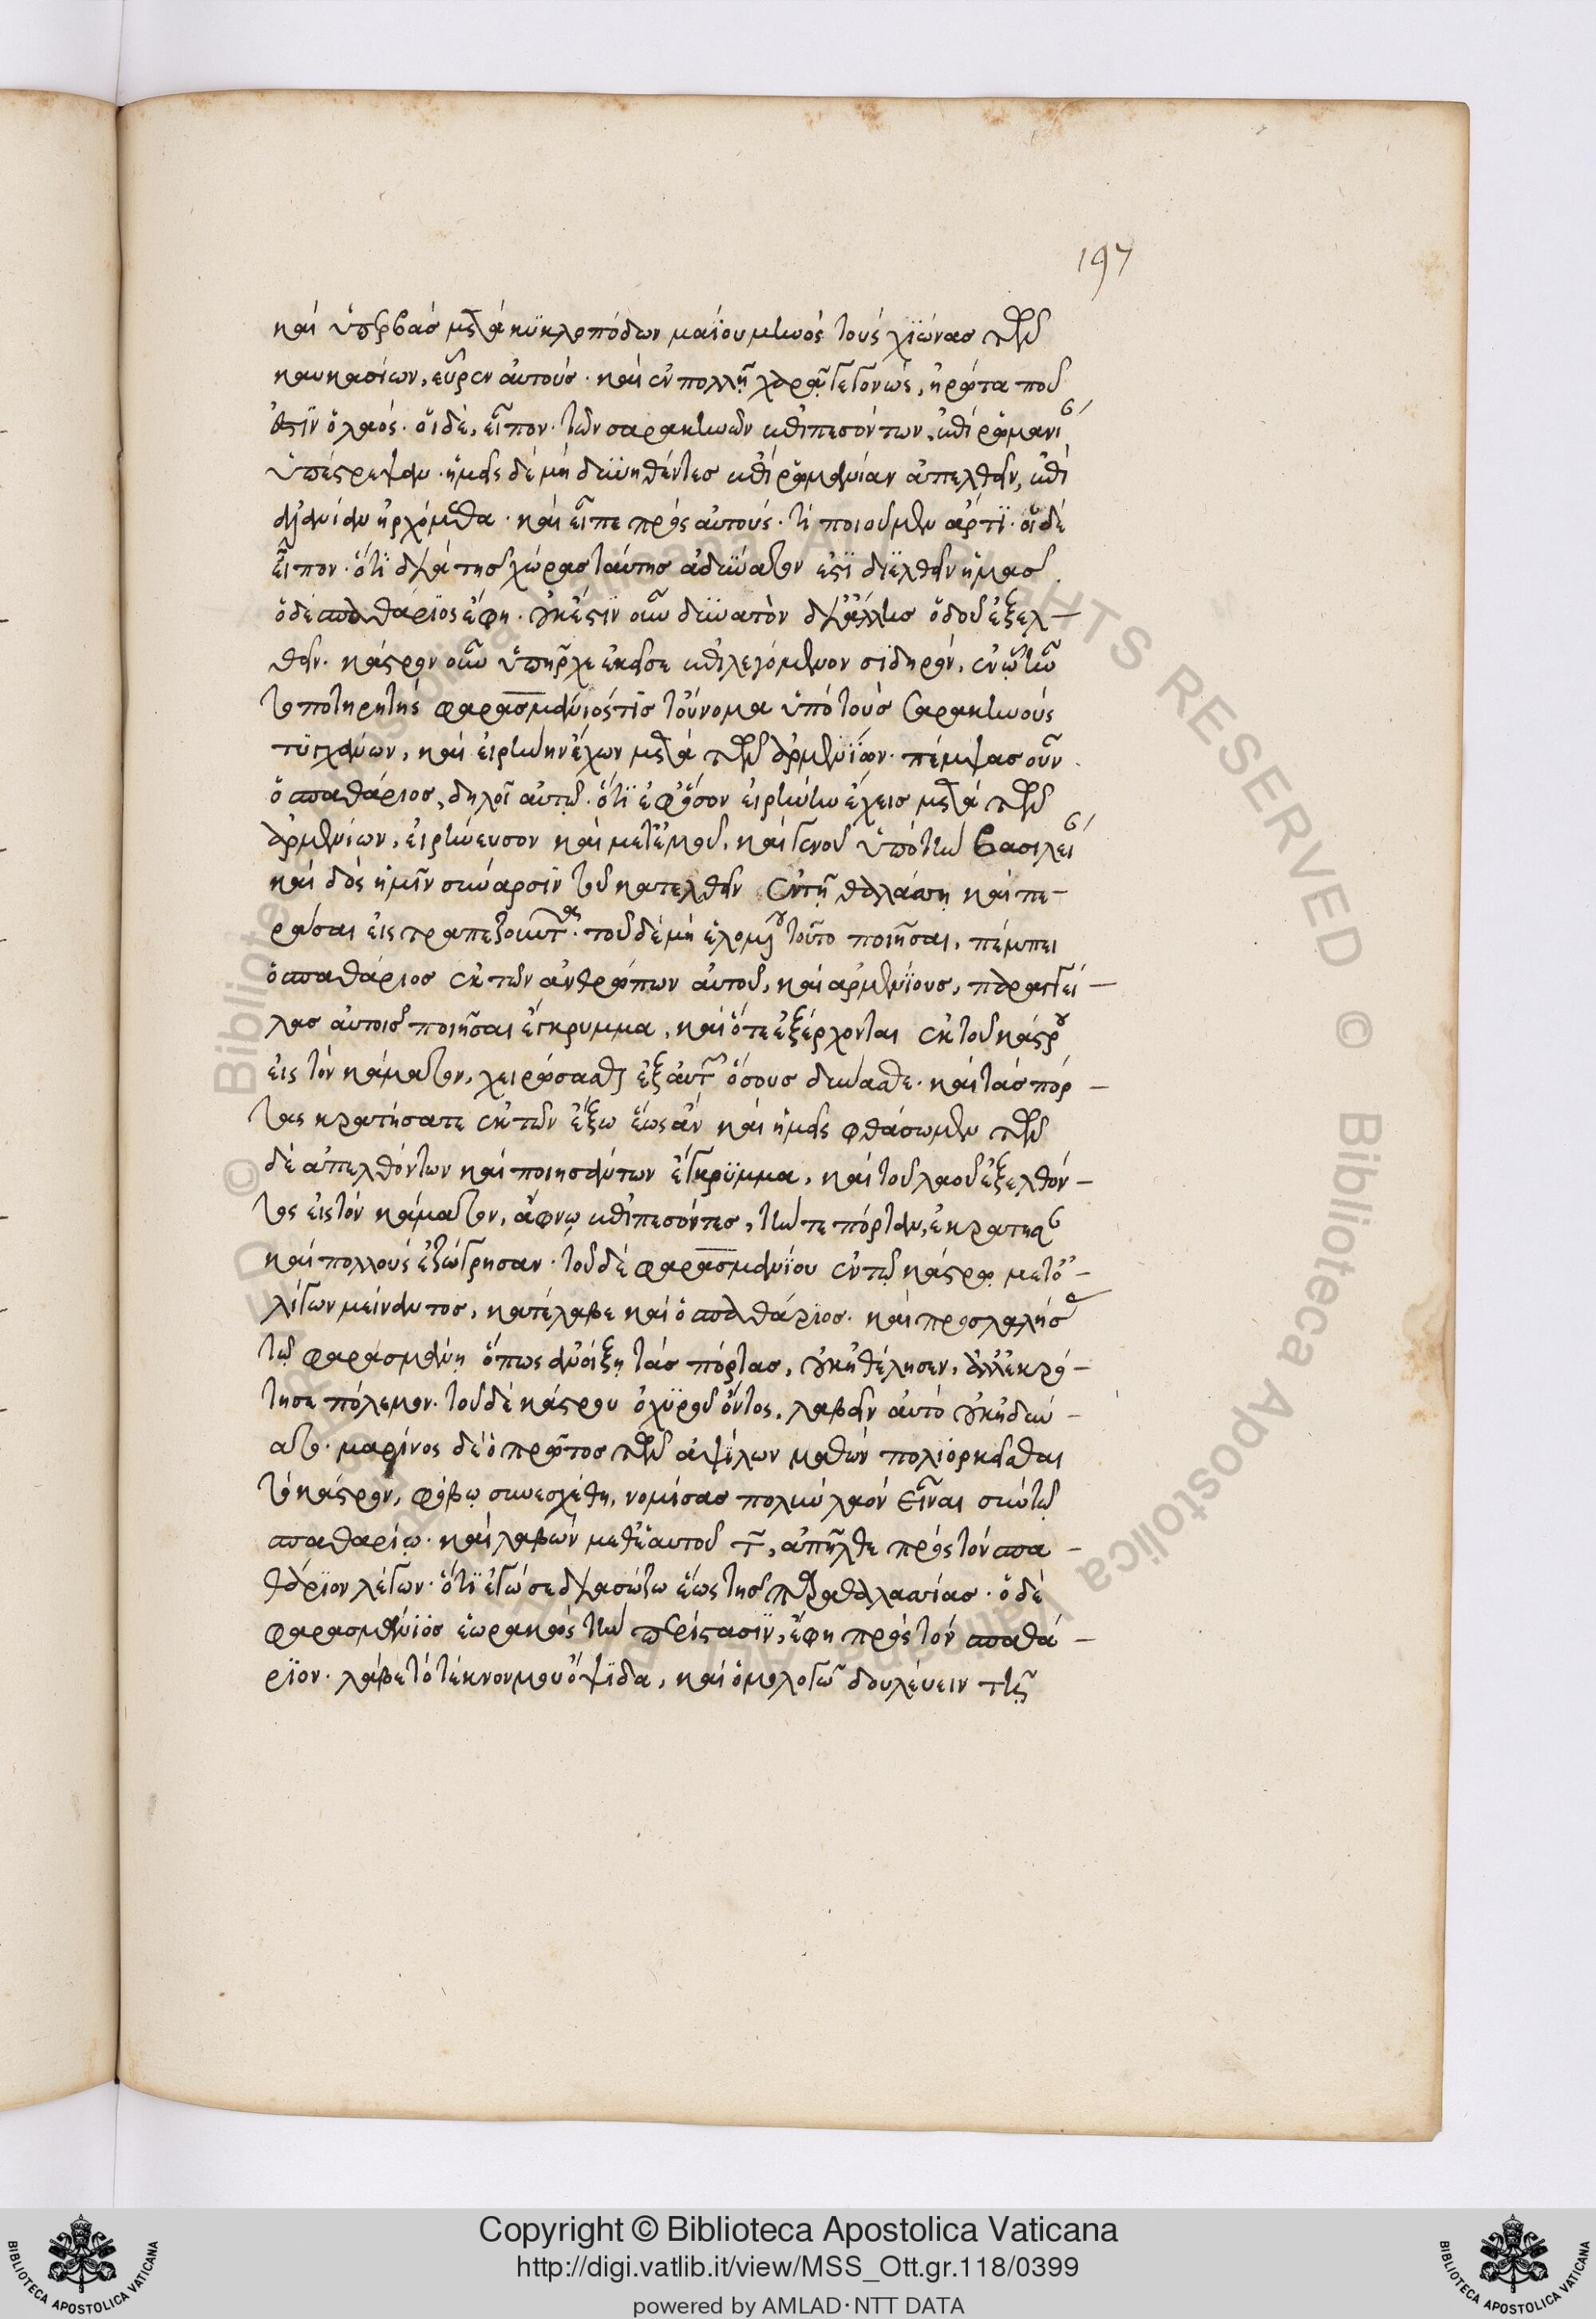 197
καὶ ὑπερβὰς μετὰ κυκλοπόδων μαΐου μηνὸς τοὺς χιῶνας τῶν
καυκασίων, εὗρεν αὐτούς· καὶ ἐν πολλῇ χαρᾷ γεγονὼς, ἠρώτα ποῦ
ἐστὶν ὁ λαός· οἱ δὲ, εἶπον· τῶν σαρακηνῶν ἐπιπεσόντων, ἐπὶ ῥωμανί
ὑπέστρεψαν· ἡμεῖς δὲ μὴ δυνηθέντες ἐπὶ ῥωμανίαν ἀπελθεῖν, ἐπὶ
ἀλανίαν ἠρχόμεθα· καὶ εἶπε πρὸς αὐτούς· τί ποιοῦμεν ἄρτι· οἱ δὲ
εἶπον· ὅτι διὰ τῆς χώρας ταύτης ἀδύνατον ἐστὶ διελθεῖν ἡμᾶς
ὁ δὲ σπαθάριος ἔφη· οὐκ ἔστιν οὖν δυνατὸν δι' ἄλλης ὁδοῦ ἐξελ–
θεῖν· κάστρον οὖν ὑπῆρχε ἐκεῖσε ἐπιλεγόμενον σιδηρόν, ἐν ᾧ ἦν
τοποτηρητὴς φαρασμάνιός τις τοὔνομα ὑπὸ τοὺς σαρακηνοὺς
τυγχάνων, καὶ εἰρήνην ἔχων μετὰ τῶν ἀρμενίων· πέμψας οὖν
ὁ σπαθάριος, δηλοῖ αὐτῷ· ὅτι ἐφ' ὅσον εἰρήνην ἔχεις μετὰ τῶν
ἀρμενίων, εἰρήνευσον καὶ μετ' ἐμοῦ, καὶ γενοῦ ὑπὸ τὴν βασιλεί
καὶ δὸς ἡμῖν συνάρσιν τοῦ κατελθεῖν ἐν τῇ θαλάσσῃ καὶ πε–
ράσαι εἰς τραπεζοῦντα· τοῦ δὲ μὴ ἑλομένου τοῦτο ποιῆσαι, πέμπει
ὁ σπαθάριος ἐκ τῶν ἀνθρώπων αὐτοῦ, καὶ ἀρμενίους, παραγγεί–
λας αὐτοῖς ποιῆσαι ἔγκρυμμα, καὶ ὅτε ἐξέρχονται ἐκ τοῦ κάστρου
εἰς τὸν κάματον, χειρώσασθαι ἐξ αὐτῶν ὅσους δύνασθε· καὶ τὰς πόρ–
τας κρατήσατε ἐκ τῶν ἔξω ἕως ἂν καὶ ἡμεῖς φθάσωμεν τῶν
δὲ ἀπελθόντων καὶ ποιησάντων ἔγκρυμμα, καὶ τοῦ λαοῦ ἐξελθόν–
τος εἰς τὸν κάματον, ἄφνω ἐπιπεσόντες, τήν τε πόρταν, ἐκράτησαν
καὶ πολλοὺς ἐζώγρησαν· τοῦ δὲ φαρασμανίου ἐν τῷ κάστρῳ μετ' ὀ–
λίγων μείναντος, κατέλαβε καὶ ὁ σπαθάριος· καὶ προσλαλήσας
τῷ φαρασμάνῃ ὅπως ἀνοίξῃ τὰς πόρτας, οὐκ ἠθέλησεν, ἀλλ' ἐκρό–
τησε πόλεμον· τοῦ δὲ κάστρου ὀχυροῦ ὄντος, λαβεῖν αὐτὸ οὐκ ἠδύν–
ατο· μαρίνος δὲ ὁ πρῶτος τῶν ἀψίλων μαθὼν πολιορκεῖσθαι
τὸ κάστρον, φόβῳ συνεσχέθη, νομίσας πολὺν λαὸν εἶναι σὺν τῷ
σπαθαρίῳ· καὶ λαβὼν μεθ' ἑαυτοῦ τ̅, ἀπῆλθε πρὸς τὸν σπα–
θάριον λέγων· ὅτι ἐγώ σε διασώζω ἕως τῆς παραθαλασσίας· ὁ δὲ
φαρασμάνιος ἑωρακὼς τὴν περίστασιν, ἔφη πρὸς τὸν σπαθά–
ριον· λάβε τὸ τέκνον μου ὄψιδα, καὶ ὁμολογῶ δουλεύειν τῇ
Copyright © Biblioteca Apostolica Vaticana
http://digi.vatlib.it/view/MSS_Ott.gr.118/0399
powered by AMLAD·NTT DATA